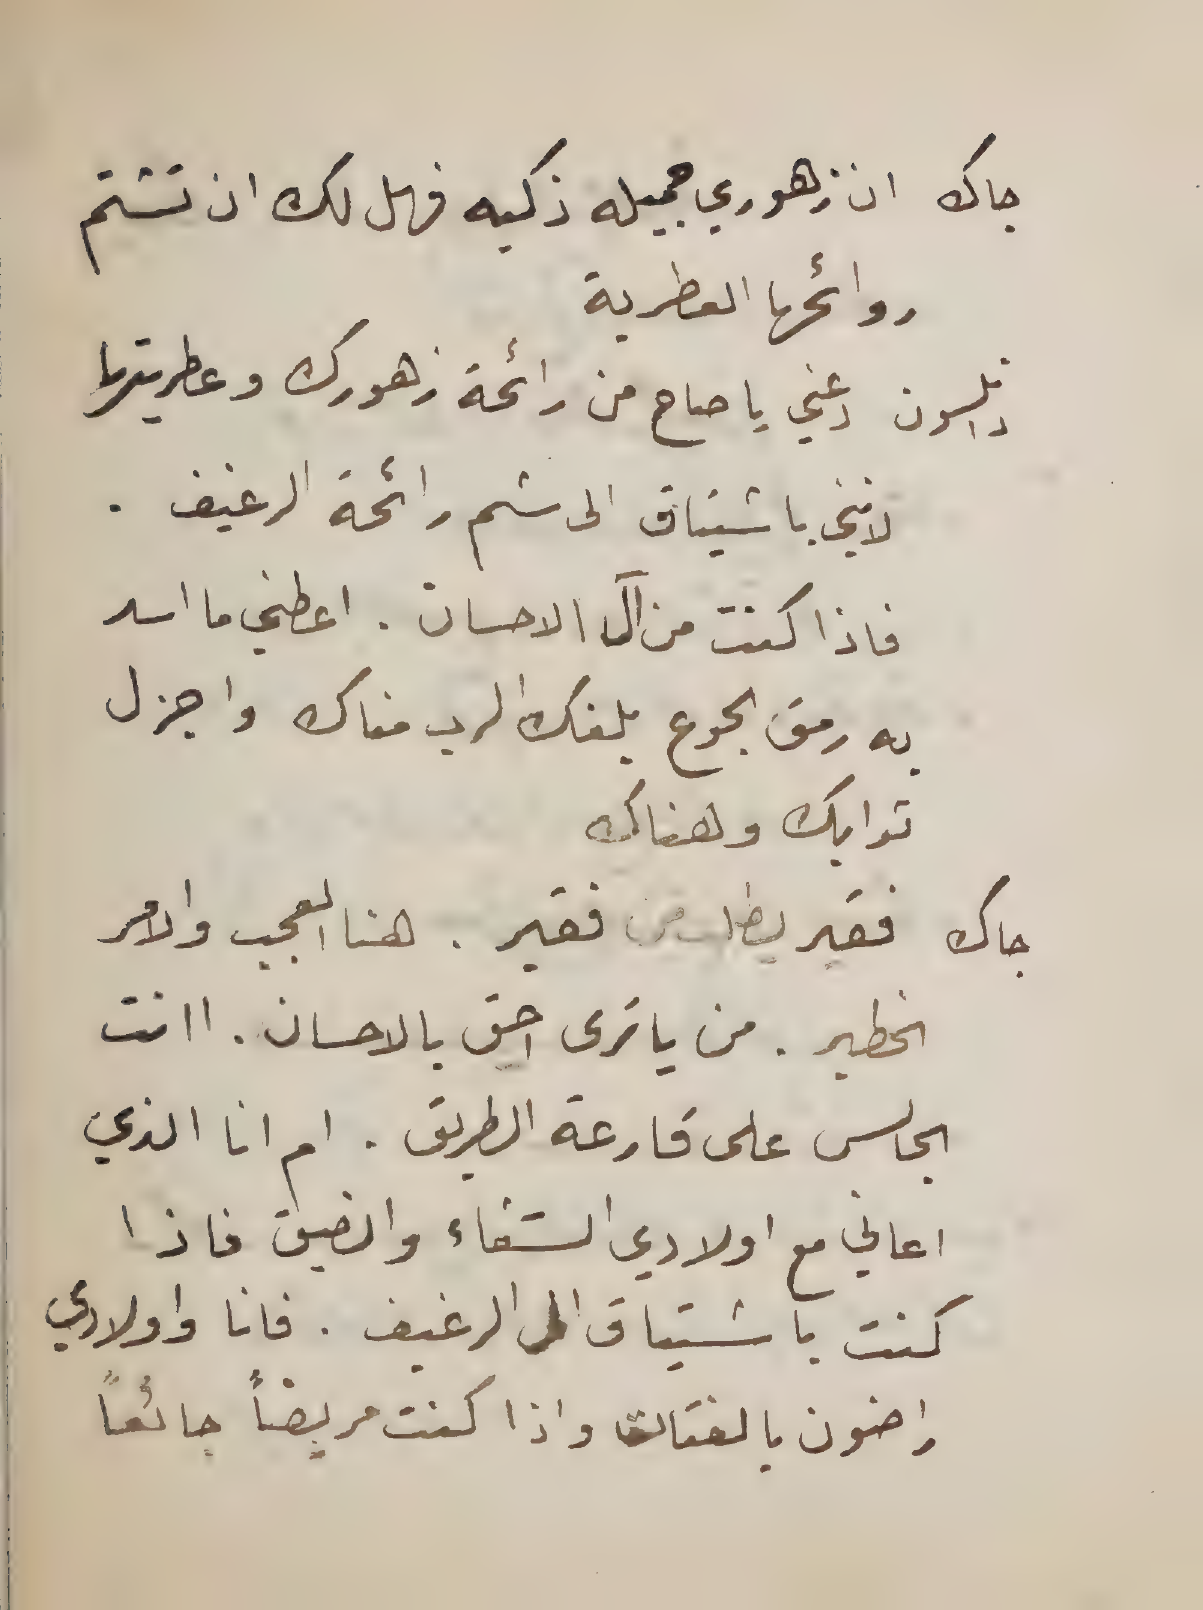 جاك ان زهوري جميله ذكيه فهل لك ان تشتم
روائحها العطرية
دعني يا صاح من رائحة زهورك وعطريتها
لانني باشتياق الى شم رائحة الرغيف .
فاذا كنت من آل الاحسان . اعطني ما اسد
به رمق الجوع بلغك الرب مناك واجزل
ثوابك وهناك
جاك فقير يطلب من فقير . هنا العجب والامر
الخطير . من يا ترى احق بالاحسان . اانت
الجالس على قارعة الطريق . ام انا الذي
اعاني مع اولادي الشقاء والضيق فاذا
كنت باشتياق الى الرغيف . فانا واولادي
راضون بالفتات واذا كنت مريضاً جائعاً